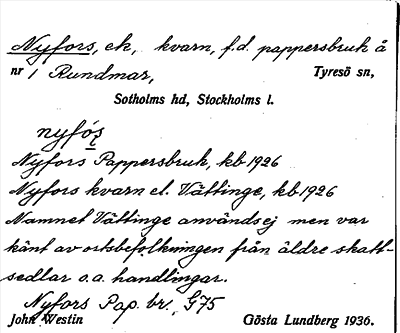 Nyfors, ek, kvarn, f.d. pappersbruk å
nr 1 Rundmar, Tyresö sn,
Sotholms hd, Stockholms l.
nyfo̗ṣ
Nyfors Pappersbruk, kb 1926
Nyfors kvarn el. Vättinge, kb 1926
Namnet Vättinge användsej men var
känt av ortsbefolkningen från äldre skatt-
sedlar o.a. handlingar.
Nyfors Pap. br., G75
John Westin Gösta Lundberg 1936.